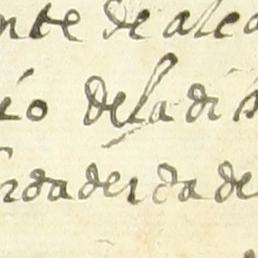 nte de alca
io dela di
rdaderta de